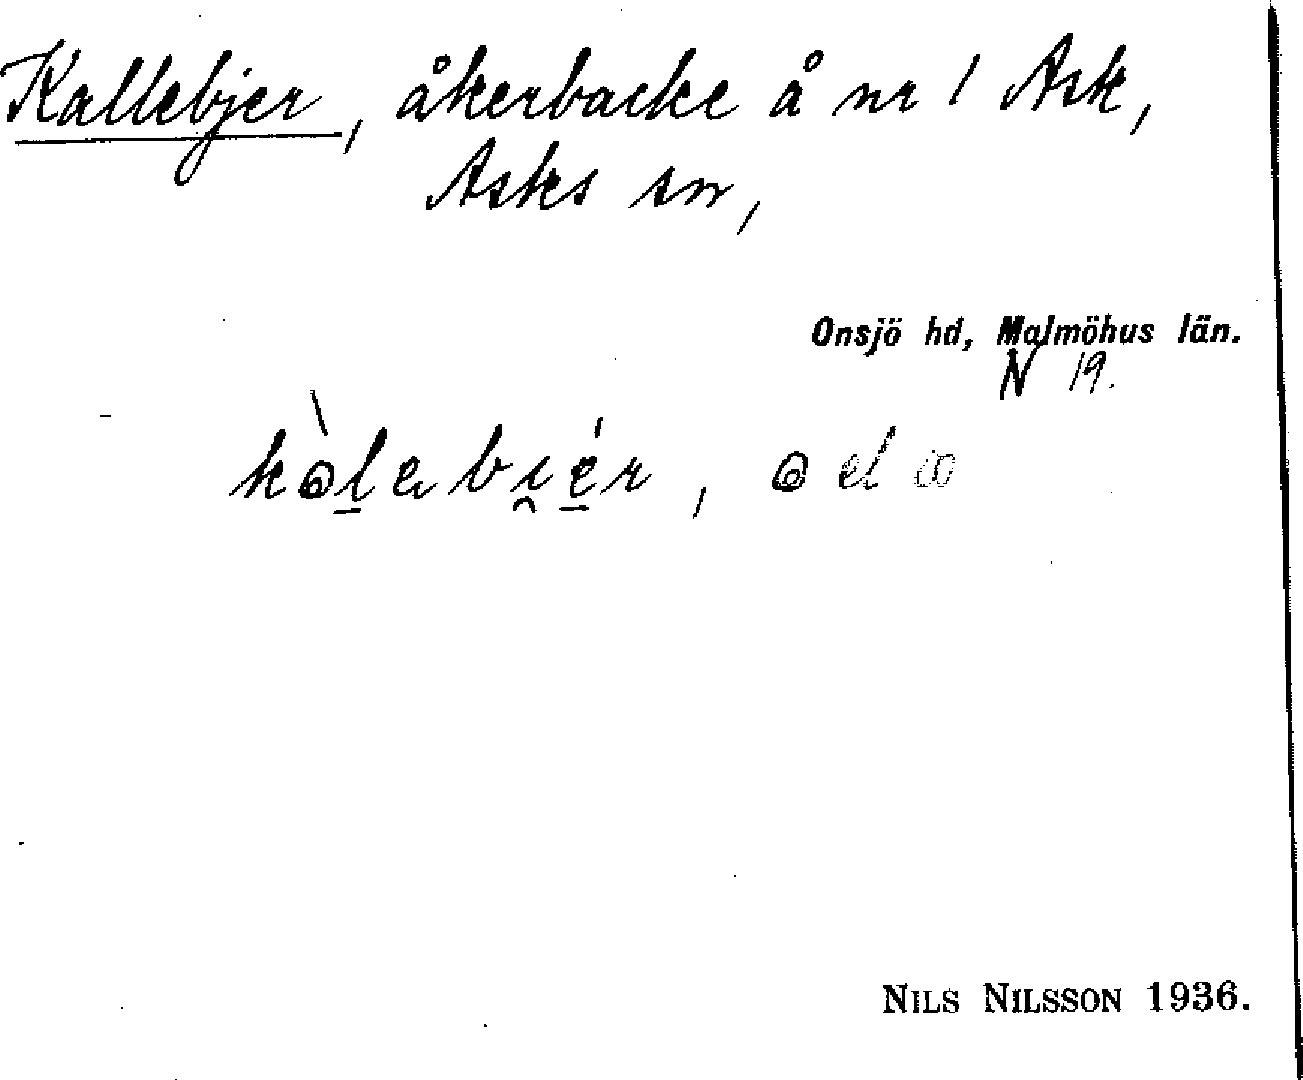 Kallebjer, åkerbacke å nr 1 Ask,
Asks sn,
Onsjö hd, Malmöhus län.
N 19.
NILS NILSSON 1936.